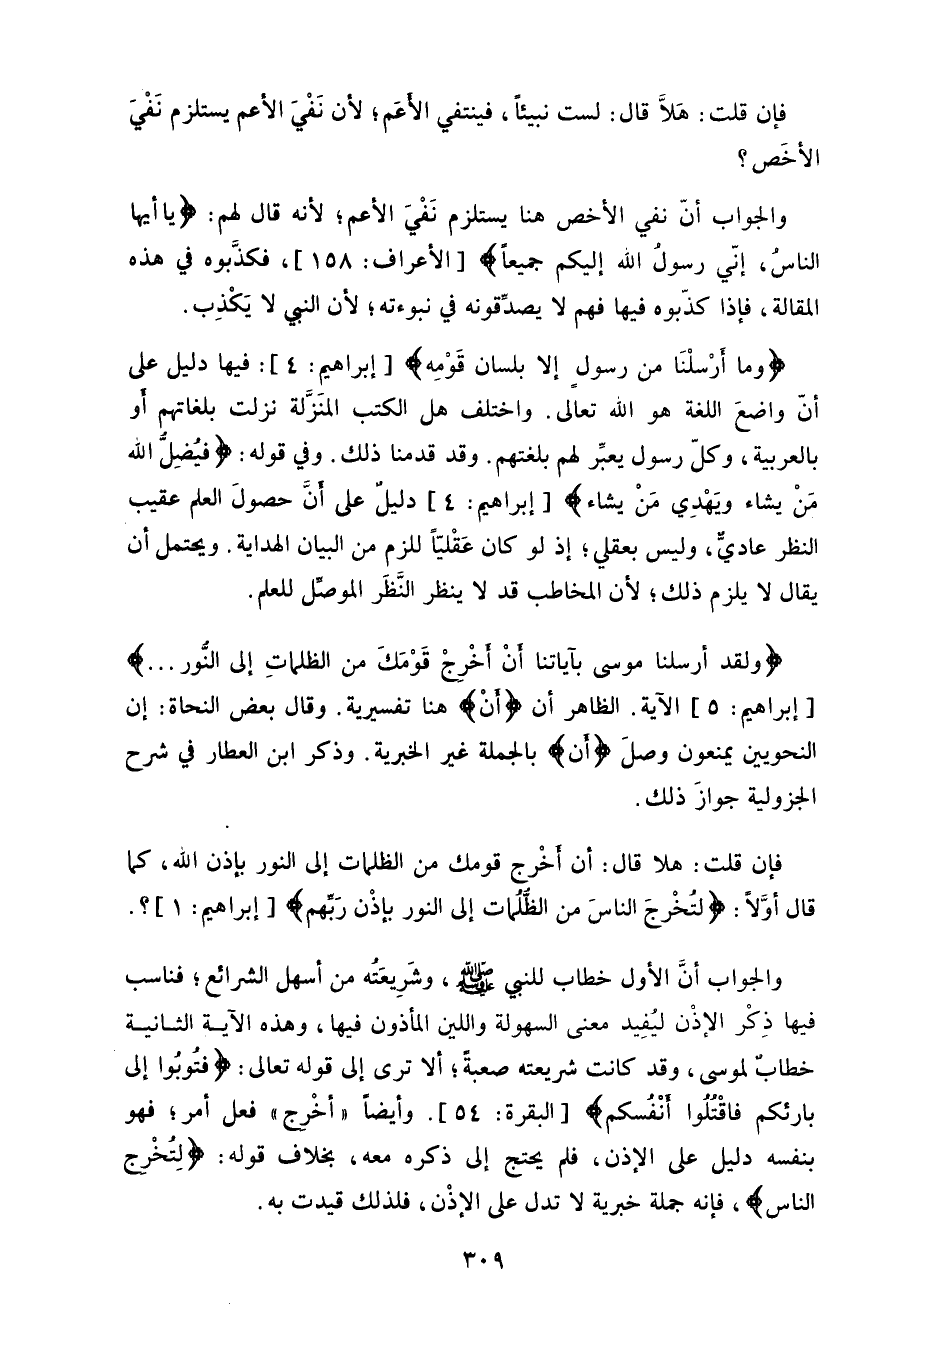 فإن قلت: هَلاَّ قال: لست نبيئاً، فينتفي الأَعَم؛ لأن نَفْيَ الأعم يستلزم نَفْيَ
الأخَص؟
والجواب أنّ نفي الأخص هنا يستلزم نَفْيَ الأعم؛ لأنه قال لهم: ﴿يا أيها
الناسُ، إنّي رسولُ الله إليكم جميعاً﴾ [الأعراف: ١٥٨]، فكذَّبوه في هذه
المقالة، فإذا كذّبوه فيها فهم لا يصدِّقونه في نبوءته؛ لأن النبي لا يَكْذِب.
﴿وما أَرْسلْنَا من رسولٍ إلا بلسان قَوْمِه﴾ [إبراهيم: ٤]: فيها دليل على
أنّ واضعَ اللغة هو الله تعالى. واختلف هل الكتب المنَزَّلة نزلت بلغاتهم أو
بالعربية، وكلّ رسول يعبِّر لهم بلغتهم. وقد قدمنا ذلك. وفي قوله: ﴿فيُضِلُّ الله
مَنْ يشاء ويَهْدِي مَنْ يشاء﴾ [إبراهيم: ٤] دليلٌ على أَنَّ حصولَ العلم عقيب
النظر عاديٌّ، وليس بعقلي؛ إذ لو كان عَقْليّاً للزم من البيان الهداية. ويحتمل أن
يقال لا يلزم ذلك؛ لأن المخاطب قد لا ينظر النَّظَر الموصِّل للعلم.
﴿ولقد أرسلنا موسى بآياتنا أَنْ أَخْرِجْ قَوْمَكَ من الظلماتِ إلى النُّور...﴾
[إبراهيم: ٥] الآية. الظاهر أن ﴿أَنْ﴾ هنا تفسيرية. وقال بعض النحاة: إن
النحويين يمنعون وصلَ ﴿أَن﴾ بالجملة غير الخبرية. وذكر ابن العطار في شرح
الجزولية جوازَ ذلك.
فإن قلت: هلا قال: أن أَخْرج قومك من الظلمات إلى النور بإذن الله، كما
قال أوّلاً: ﴿لتُخْرجَ الناسَ من الظُّلُمات إلى النور بإذْن رَبِّهم﴾ [إبراهيم: ١]؟.
والجواب أنَّ الأول خطاب للنبي ﷺ، وشَرِيعَتُه من أسهل الشرائع؛ فناسب
فيها ذِكْر الإذْن ليُفِيد معنى السهولة واللين المأذون فيها، وهذه الآية الثانية
خطابٌ لموسى، وقد كانت شريعته صعبةً؛ ألا ترى إلى قوله تعالى: ﴿فتُوبُوا إلى
بارئكم فاقْتُلُوا أَنْفُسكم﴾ [البقرة: ٥٤]. وأيضاً «أخْرِج» فعل أمر؛ فهو
بنفسه دليل على الإذْن، فلم يحتج إلى ذكره معه، بخلاف قوله: ﴿لِتُخْرِج
الناس﴾، فإنه جملة خبرية لا تدل على الإذْن، فلذلك قيدت به.
٣٠٩